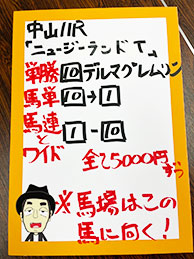 中山11R
「ニュージーランドT」
単勝 10 デルマグレムリン
馬単 10→1
馬連とワイド 1-10
全て5000円ずつ
※馬場はこの
馬に向く!